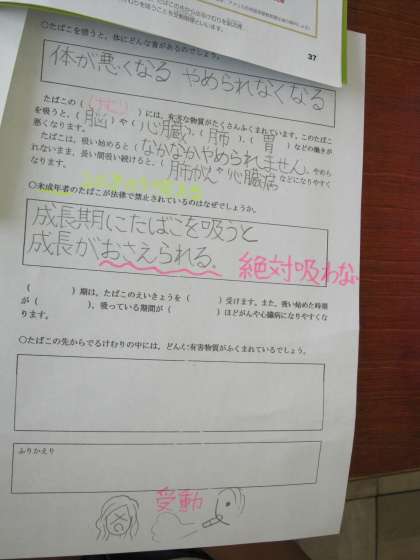 37
○たばこを吸うと、体にどんな害があるのでしょう。
体が悪くなる やめられなくなる
たばこの（けむり）には、有害な物質がたくさんふくまれています。このたばこ
を吸うと、（脳）や（心臓）、（肺）、（胃）などの働きが
悪くなります。
たばこは、吸い始めると（なかなかやめられません）。やめら
れないまま、長い間吸い続けると、（肺がんや心臓病）などになりやすく
なります。
○未成年者のたばこが法律で禁止されているのはなぜでしょうか。
成長期にたばこを吸うと
成長がおさえられる。
絶対吸わない
（　　　）期は、たばこのえいきょうを（　　　）受けます。また、吸い始めた時期
が（　　　）、吸っている期間が（　　　）ほどがんや心臓病になりやすくな
ります。
○たばこの先からでるけむりの中には、どんな有害物質がふくまれているでしょう。
ふりかえり
受動